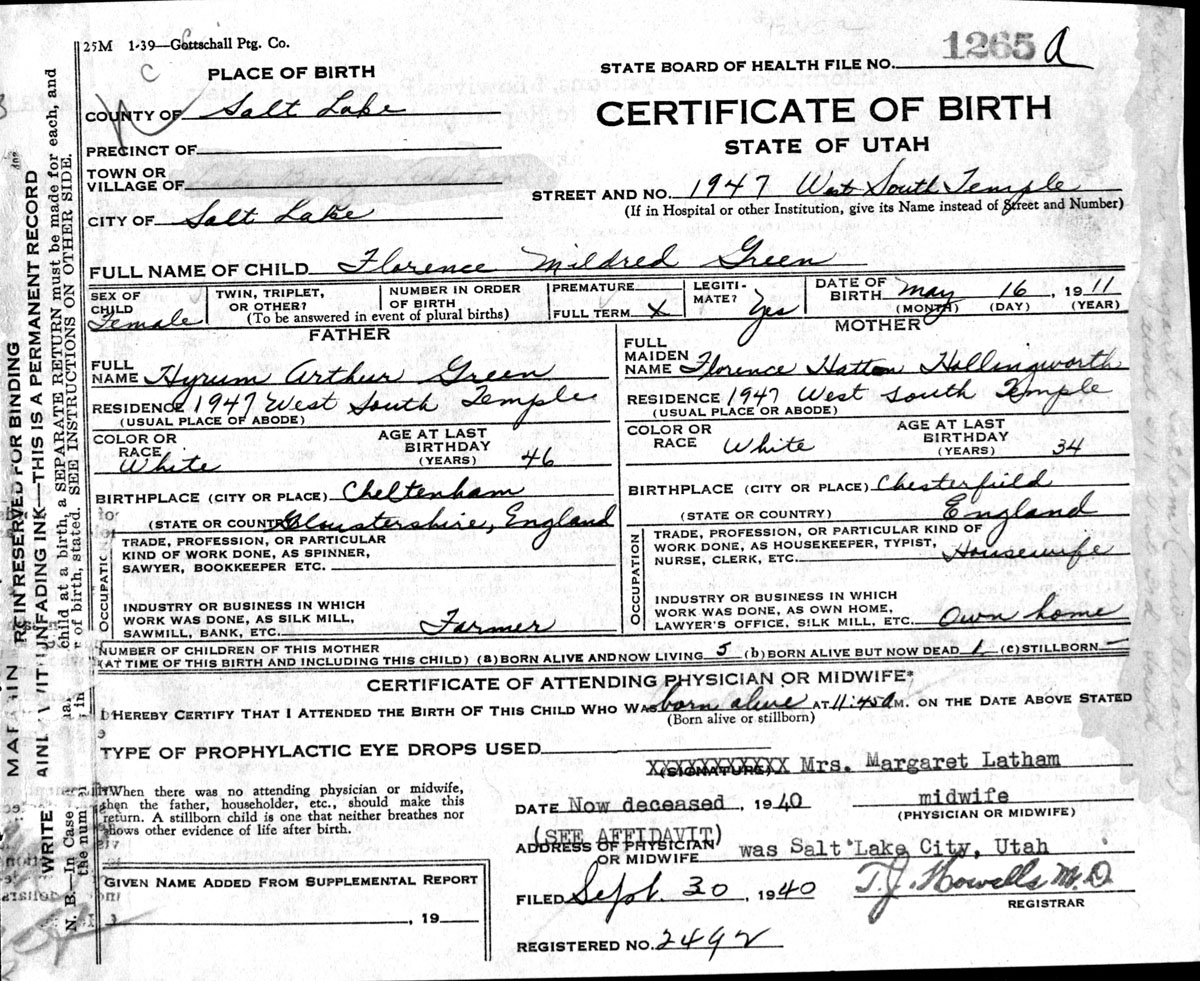 25M 1-39—Gottschall Ptg. Co.
1265 a
STATE BOARD OF HEALTH FILE NO.
PLACE OF BIRTH
COUNTY OF Salt Lake
CERTIFICATE OF BIRTH
PRECINCT OF
STATE OF UTAH
TOWN OR
VILLAGE OF
STREET AND NO. 1947 West South Temple
(If in Hospital or other Institution, give its Name instead of Street and Number)
CITY OF Salt Lake
FULL NAME OF CHILD Florence Mildred Green
SEX OF CHILD Female
TWIN, TRIPLET, OR OTHER?
NUMBER IN ORDER OF BIRTH
(To be answered in event of plural births)
PREMATURE
FULL TERM X
LEGITI-MATE? Yes
DATE OF BIRTH May 16, 1911
(MONTH) (DAY) (YEAR)
FATHER
FULL NAME Hyrum Arthur Green
RESIDENCE 1947 West South Temple
(USUAL PLACE OF ABODE)
COLOR OR RACE White
AGE AT LAST BIRTHDAY (YEARS) 46
BIRTHPLACE (CITY OR PLACE) Cheltenham
(STATE OR COUNTRY) Gloustershire, England
OCCUPATION
TRADE, PROFESSION, OR PARTICULAR
KIND OF WORK DONE, AS SPINNER,
SAWYER, BOOKKEEPER ETC.
INDUSTRY OR BUSINESS IN WHICH
WORK WAS DONE, AS SILK MILL,
SAWMILL, BANK, ETC. Farmer
MOTHER
FULL MAIDEN NAME Florence Hatton Hollingworth
RESIDENCE 1947 West South Temple
(USUAL PLACE OR ABODE)
COLOR OR RACE White
AGE AT LAST BIRTHDAY (YEARS) 34
BIRTHPLACE (CITY OR PLACE) Chesterfield
(STATE OR COUNTRY) England
OCCUPATION
TRADE, PROFESSION, OR PARTICULAR KIND OF
WORK DONE, AS HOUSEKEEPER, TYPIST,
NURSE, CLERK, ETC. Housewife
INDUSTRY OR BUSINESS IN WHICH
WORK WAS DONE, AS OWN HOME,
LAWYER'S OFFICE, SILK MILL, ETC. Own home
NUMBER OF CHILDREN OF THIS MOTHER
(AT TIME OF THIS BIRTH AND INCLUDING THIS CHILD) (a) BORN ALIVE AND NOW LIVING 5 (b) BORN ALIVE BUT NOW DEAD 1 (c) STILLBORN —
CERTIFICATE OF ATTENDING PHYSICIAN OR MIDWIFE*
I HEREBY CERTIFY THAT I ATTENDED THE BIRTH OF THIS CHILD WHO WAS born alive AT 11:45 A M. ON THE DATE ABOVE STATED
(Born alive or stillborn)
TYPE OF PROPHYLACTIC EYE DROPS USED
XXXXXXXXXXX Mrs. Margaret Latham
(SIGNATURE)
When there was no attending physician or midwife,
then the father, householder, etc., should make this
return. A stillborn child is one that neither breathes nor
shows other evidence of life after birth.
DATE Now deceased, 1940 midwife
(PHYSICIAN OR MIDWIFE)
(SEE AFFIDAVIT)
ADDRESS OF PHYSICIAN
OR MIDWIFE was Salt Lake City, Utah
GIVEN NAME ADDED FROM SUPPLEMENTAL REPORT
, 19
FILED Sept. 30, 1940 T. J. Howells M.D.
REGISTRAR
REGISTERED NO. 2492
RESERVED FOR BINDING
UNFADING INK—THIS IS A PERMANENT RECORD
child at a birth, a SEPARATE RETURN must be made for each, and
of birth, stated. SEE INSTRUCTIONS ON OTHER SIDE.
WRITE
N. B.—In Case
the num